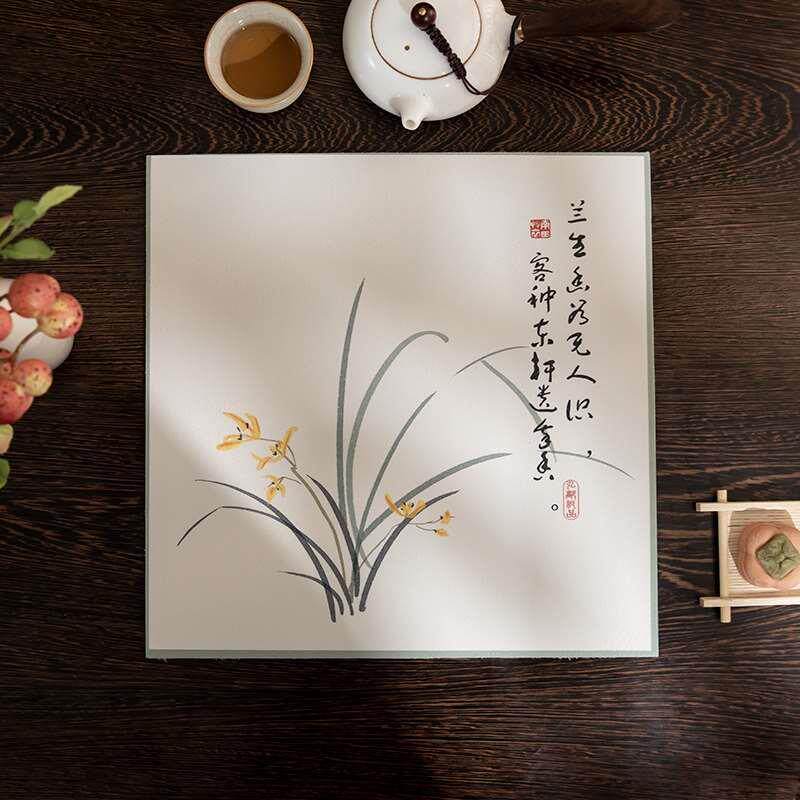 兰生幽谷无人识，
客种东轩遗我香。